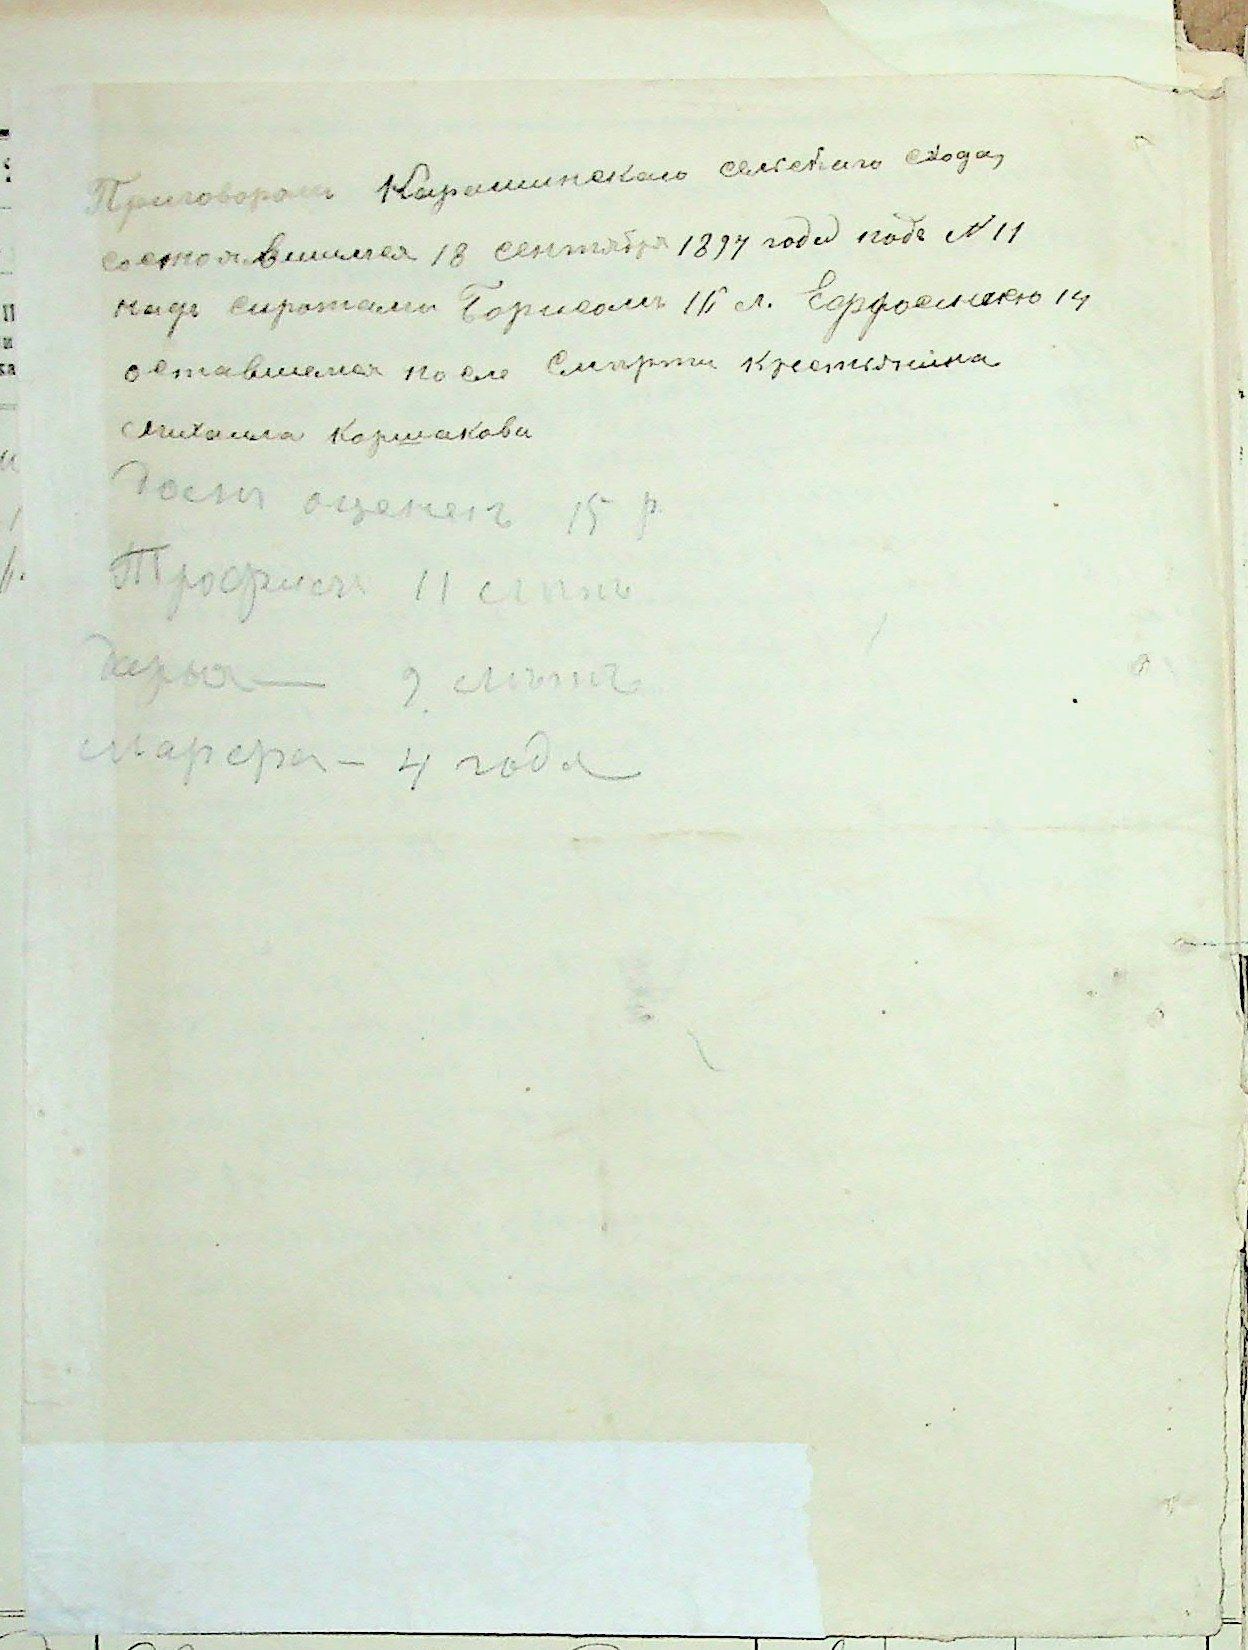 Приговоромъ Карашинскаго сельскаго схода,
состоявшимся 18 сентября 1897 года подъ № 11
надъ сиротами Борисомъ 16 л. Ефросинею 14
оставшимся после Смерти крестьянина
Михаила Коршакова
Домъ оцененъ 15 р.
Трофимъ 11 летъ
Дарья — 9 летъ
Марфа — 4 года